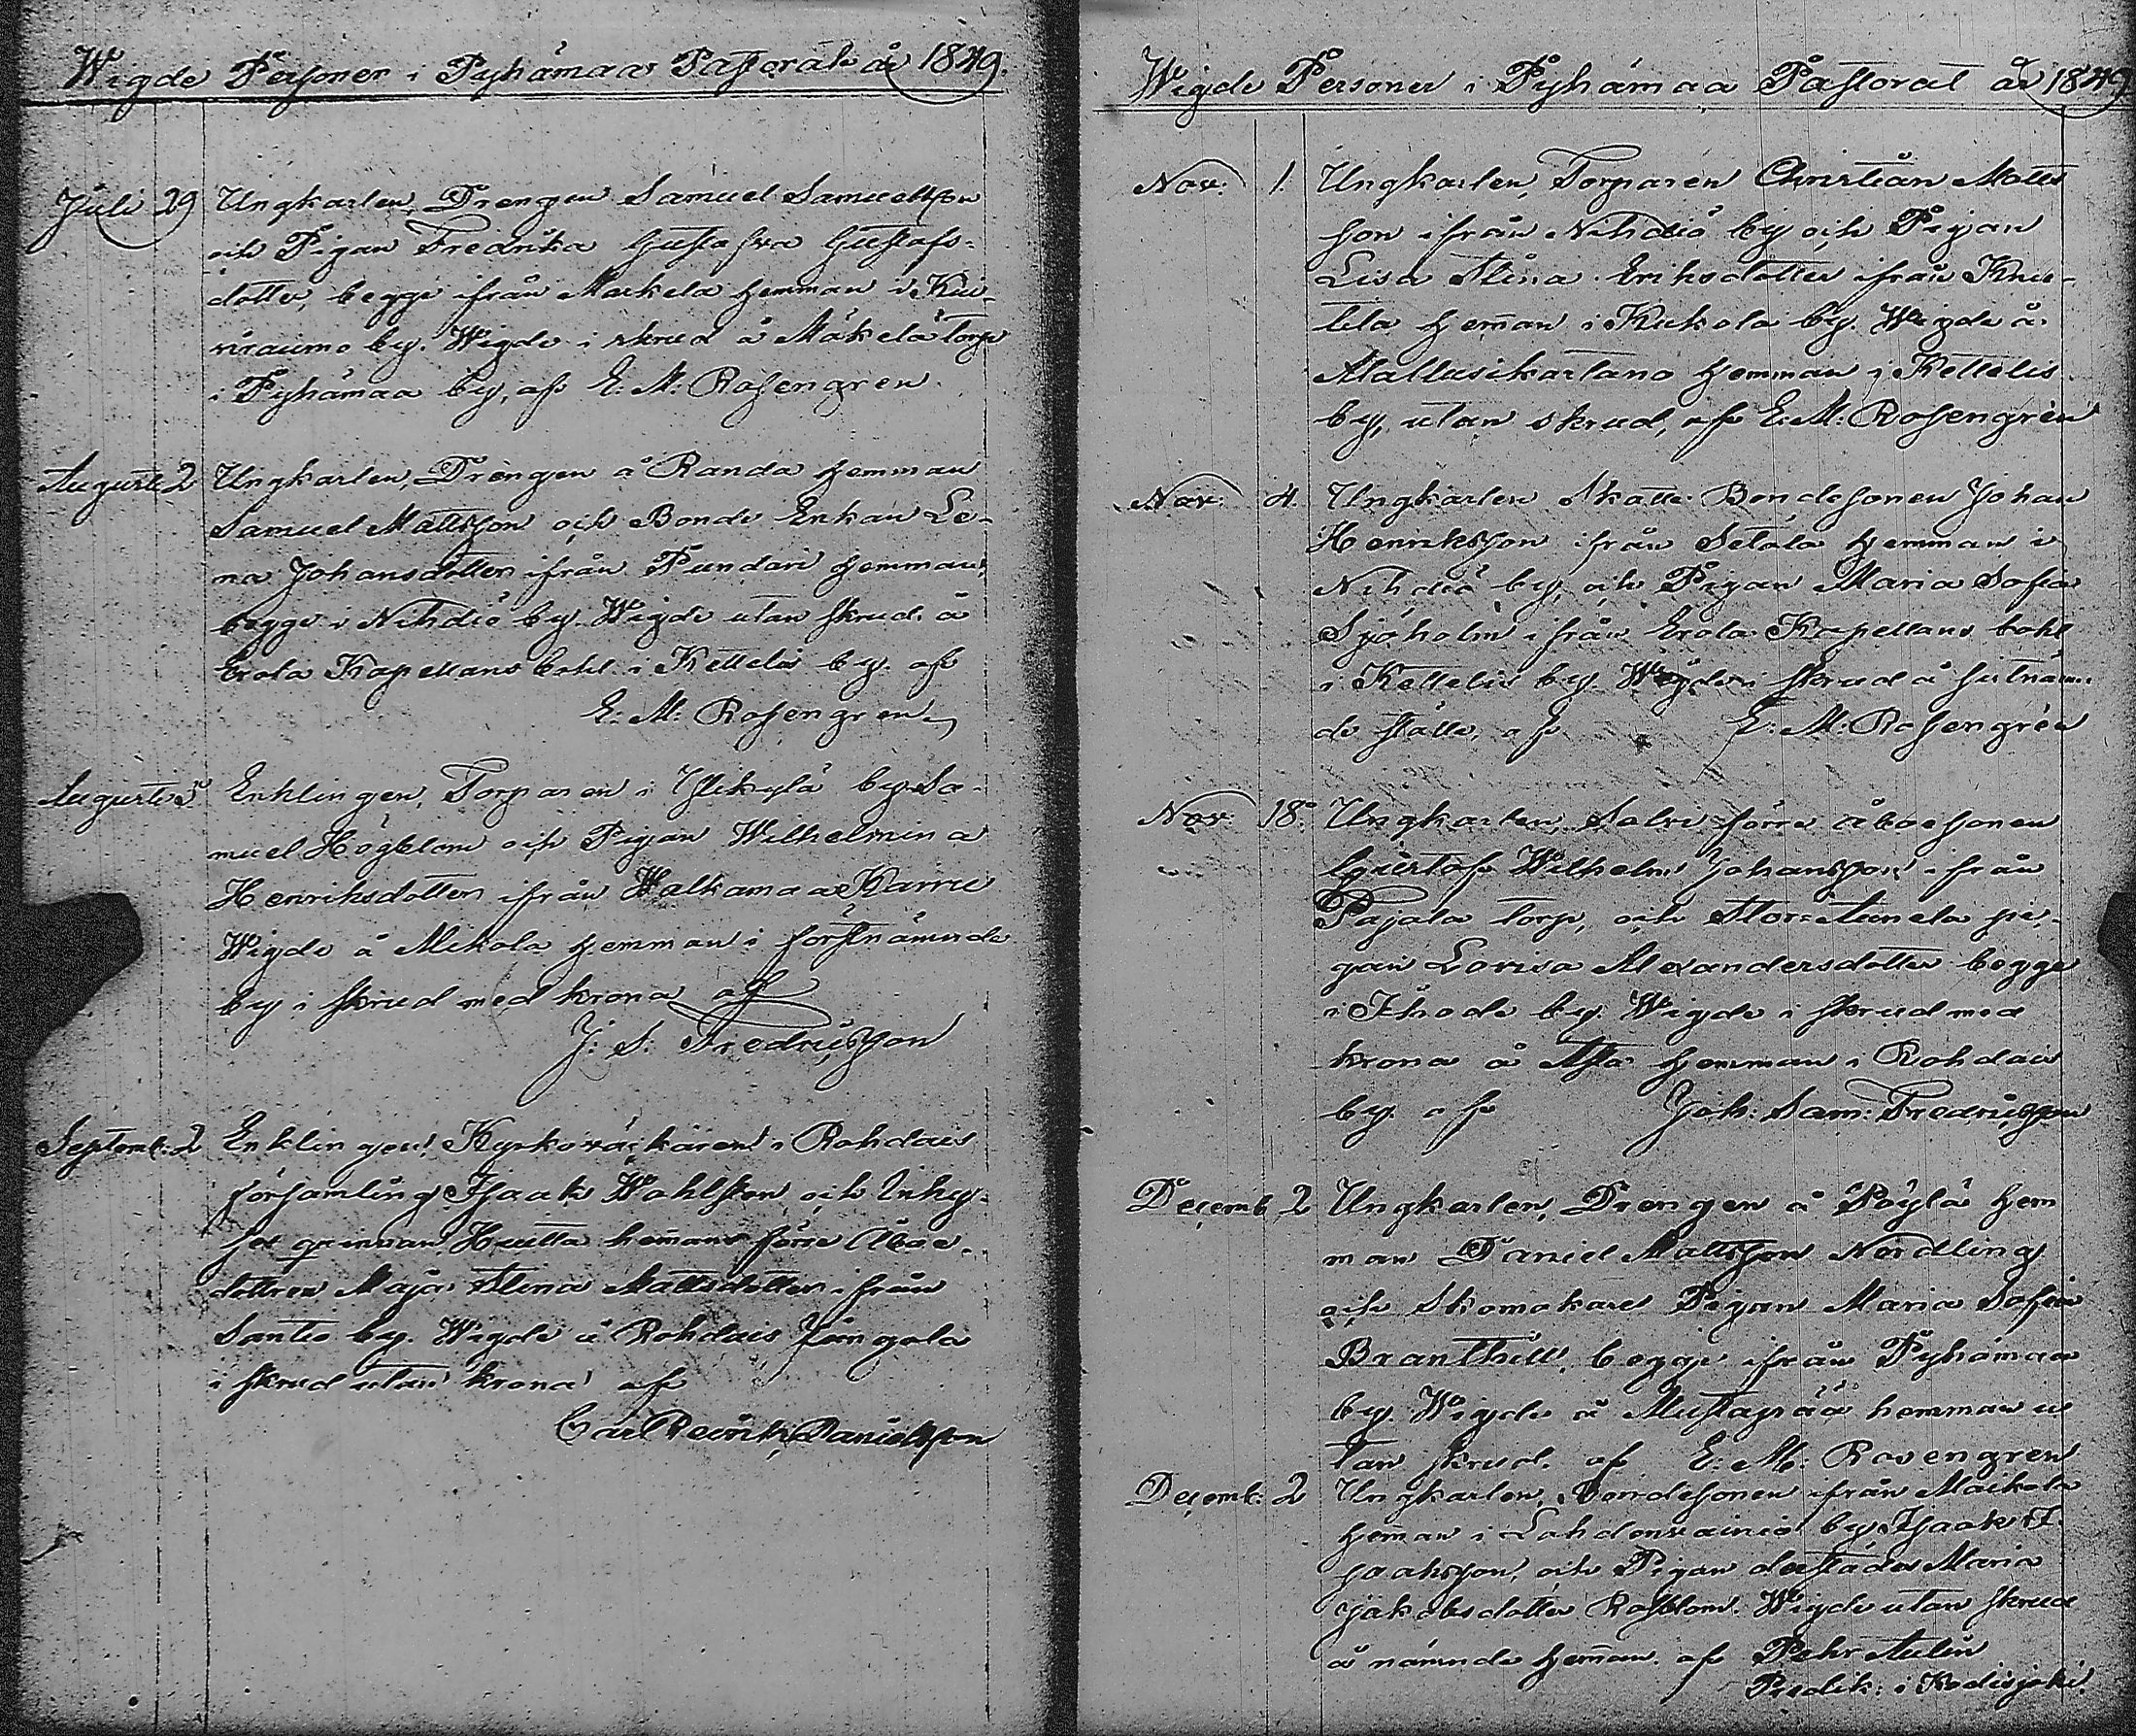 Wigde Personer i Pyhämaa Pastorat år 1849.
Juli 29 Ungkarlen, Drengen Samuel Samuelsson
och Pigan Fredrika Gustafva Gustafs-
dotter, begge ifrån Markela hemman i Kui-
viraumo by. Wigde i skrud å Mäkelä torp
i Pyhämaa by, af E. M: Rosengren.
Augusti 2 Ungkarlen, Drengen å Randa hemman
Samuel Mattsson och Bonde Enkan Le-
na Johansdotter ifrån Pundari hemman,
begge i Nihdiö by. Wigde utan skrud. å
Erola Kapellans bohl i Kettelis by. af
E: M: Rosengren
Augusti 5 Enklingen, Torparen i Ylikylä by Sa-
muel Högblom och Pigan Wilhelmina
Henriksdotter ifrån Walkamaa Karru
Wigde å Mikola hemman i förstnämnde
by i skrud med krona af
J: S: Fredriksson
Septemb: 2 Enklingen, Kyrkoväktaren i Rohdais
församling Isaak Wahlsten och Inhy-
ses qvinnan Huitta hemmans förre Åboe-
dottren Maja Stina Mattsdotter ifrån
Santio by. Wigde å Rohdais Jämgola
i skrud utan krona af
Carl Reinh. Danielsson
Wigde Personer i Pyhämaa Pastorat år 1849
Nov: 1. Ungkarlen, Torparen Christian Matts
son ifrån Nihdiö by och Pigan
Lisa Stina Eriksdotter ifrån Knu-
tila heman i Kukola by. Wigde å
Mallusikartano hemman i Kettelis
by, utan skrud, af E: M: Rosengren
Nov: 4. Ungkarlen Skatte Bondesonen Johan
Henriksson ifrån Setälä hemman i
Nihdiö by, och Pigan Maria Sofia
Sjöholm ifrån Erola Kapellans bohl
i Kettelis by. Wigde i skrud å sistnämn-
de ställe, af E: M: Rosengren
Nov: 18. Ungkarlen, förre åboesonen
Gustaf Wilhelm Johansson ifrån
Pajala torp, och Stor pi-
gan Lovisa Alexandersdotter begge
i Ihode by. Wigde i skrud med
krona å hemman i Rohdais
by. af Joh: Sam: Fredriksson
Decemb 2 Ungkarlen, Drengen å Pöylä hem
man Daniel Mattsson Nordling
och Skomakare Pigan Maria Sofia
Branthill, begge ifrån Pyhämaa
by. Wigde å Mustapää hemman u
tan skrud. af E: M: Rosengren
Decemb: 2 Ungkarlen, Bondesonen ifrån Maikola
heman i Lahdenvainio by Isaak I-
saaksson, och Pigan derstädes Maria
Jakobsdotter Rosblom. Wigde utan skrud
å nämnde heman. af Pehr Aulin
Predik: i Kodisjoki.